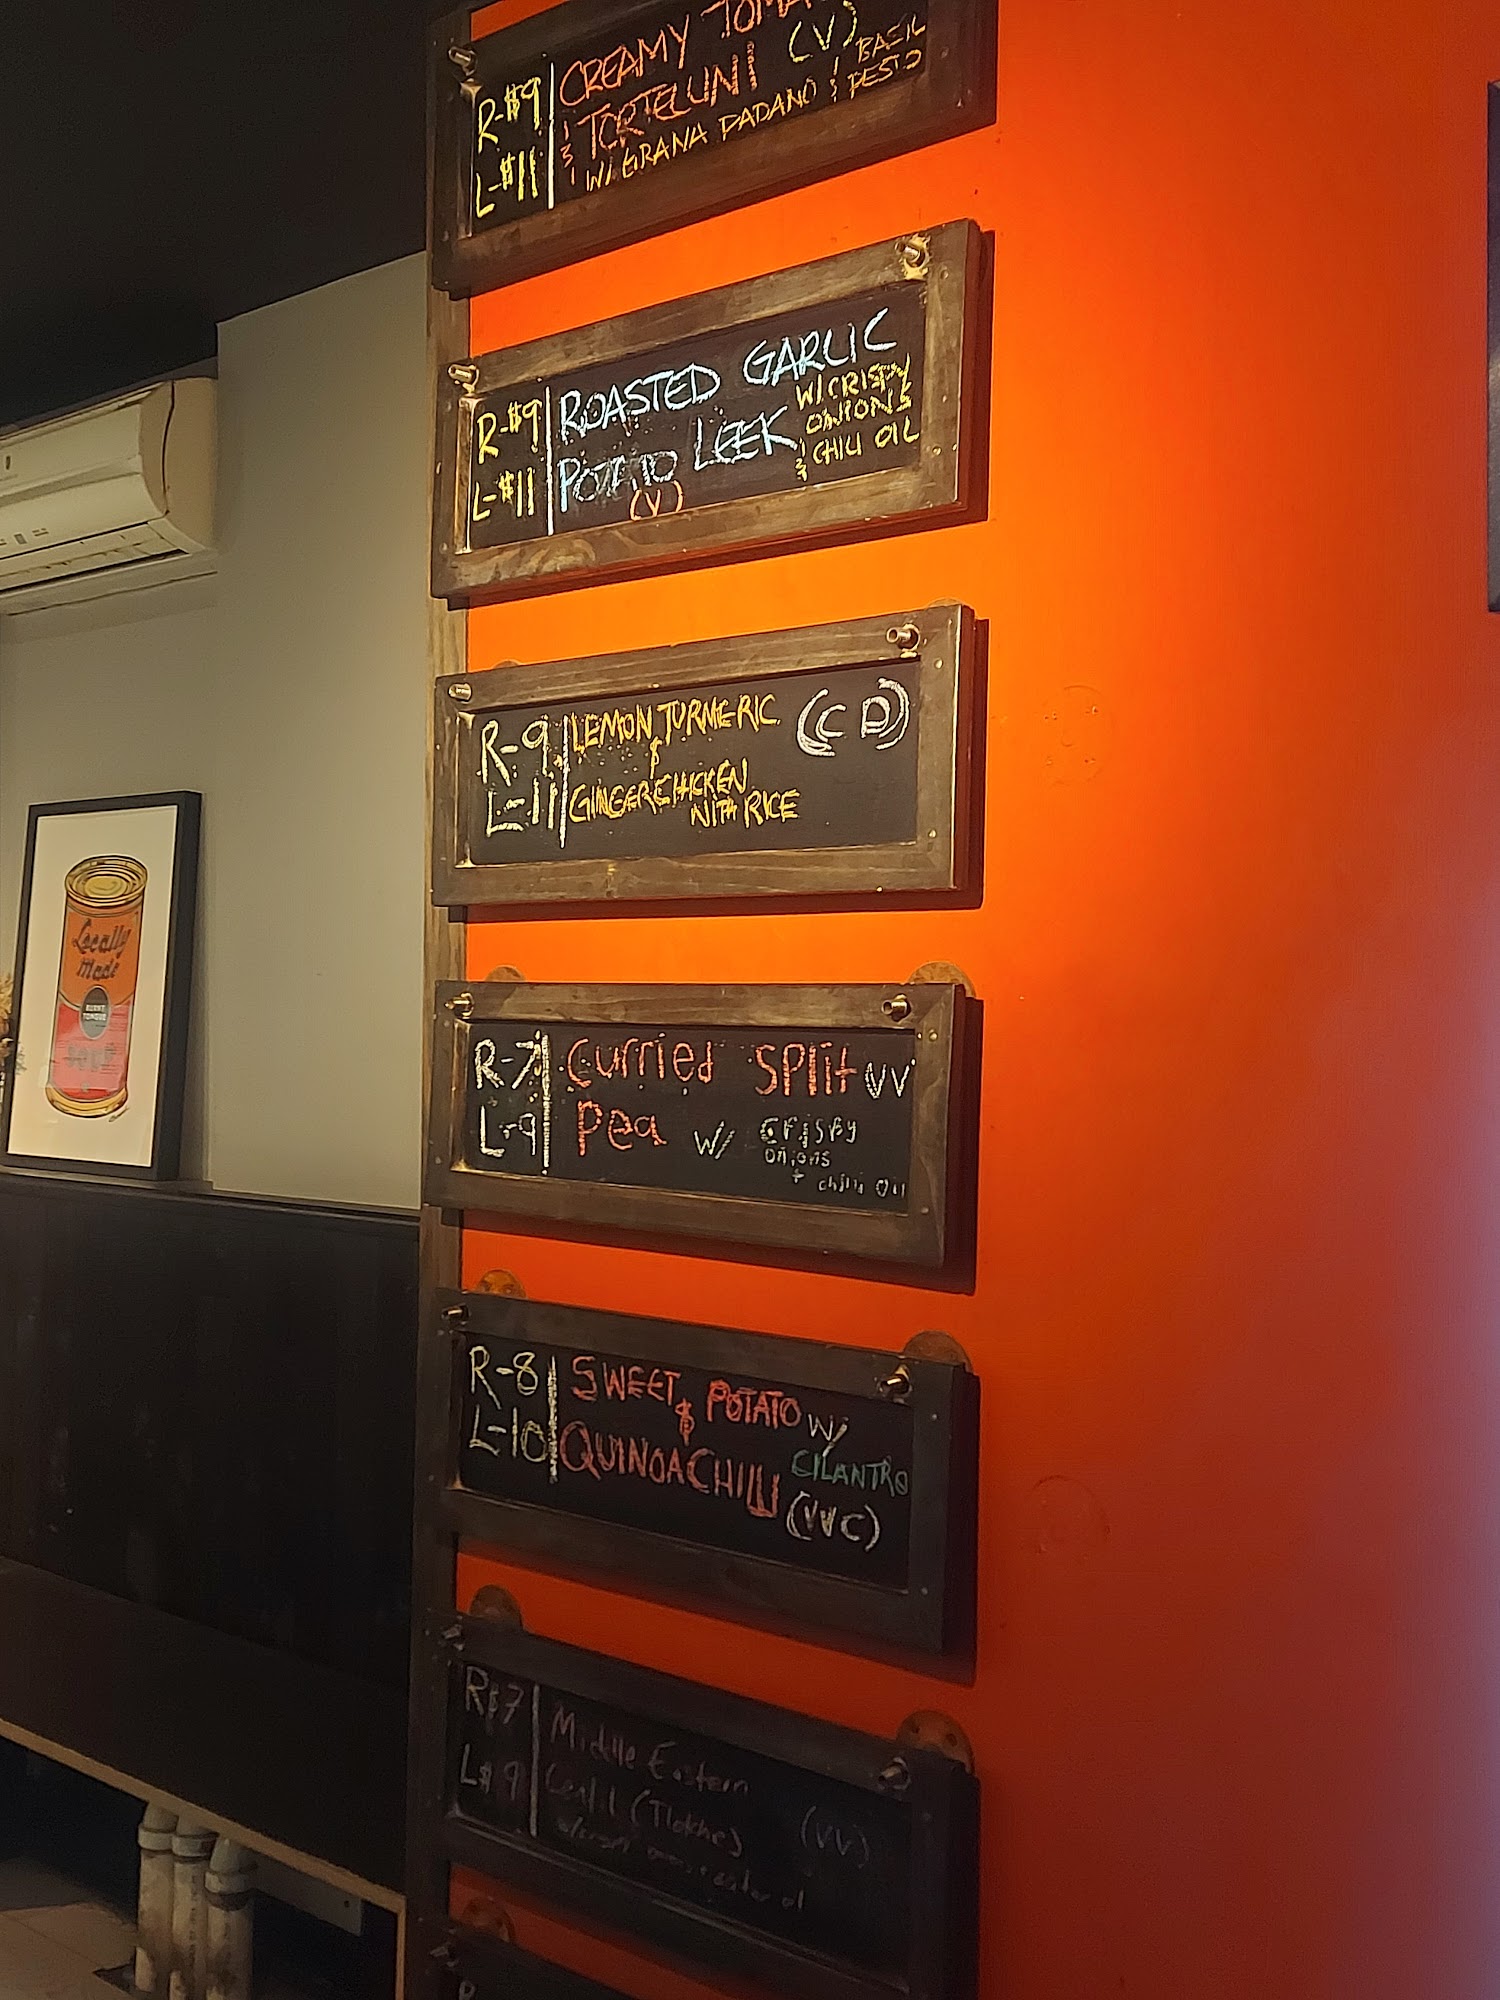 R-$9
L-$11
CREAMY
& TORTELLINI (V)
W/ GRANA PADANO & BASIL
PESTO
R-$9
L-$11
ROASTED GARLIC
POTATO LEEK
W/ CRISPY
ONIONS
& CHILI OIL
(V)
R-9
L-11
LEMON TURMERIC
&
GINGER CHICKEN
WITH RICE
(CD)
R-7
L-9
Curried SPlit VV
Pea W/ CRISPY
ONIONS
+ chili Oil
R-8
L-10
SWEET POTATO W/
& CILANTRO
QUINOA CHILI
(VVC)
R$7
L$9
Middle Eastern
(VV)
Locally
Made
BURNT
TONGUE
SOUP